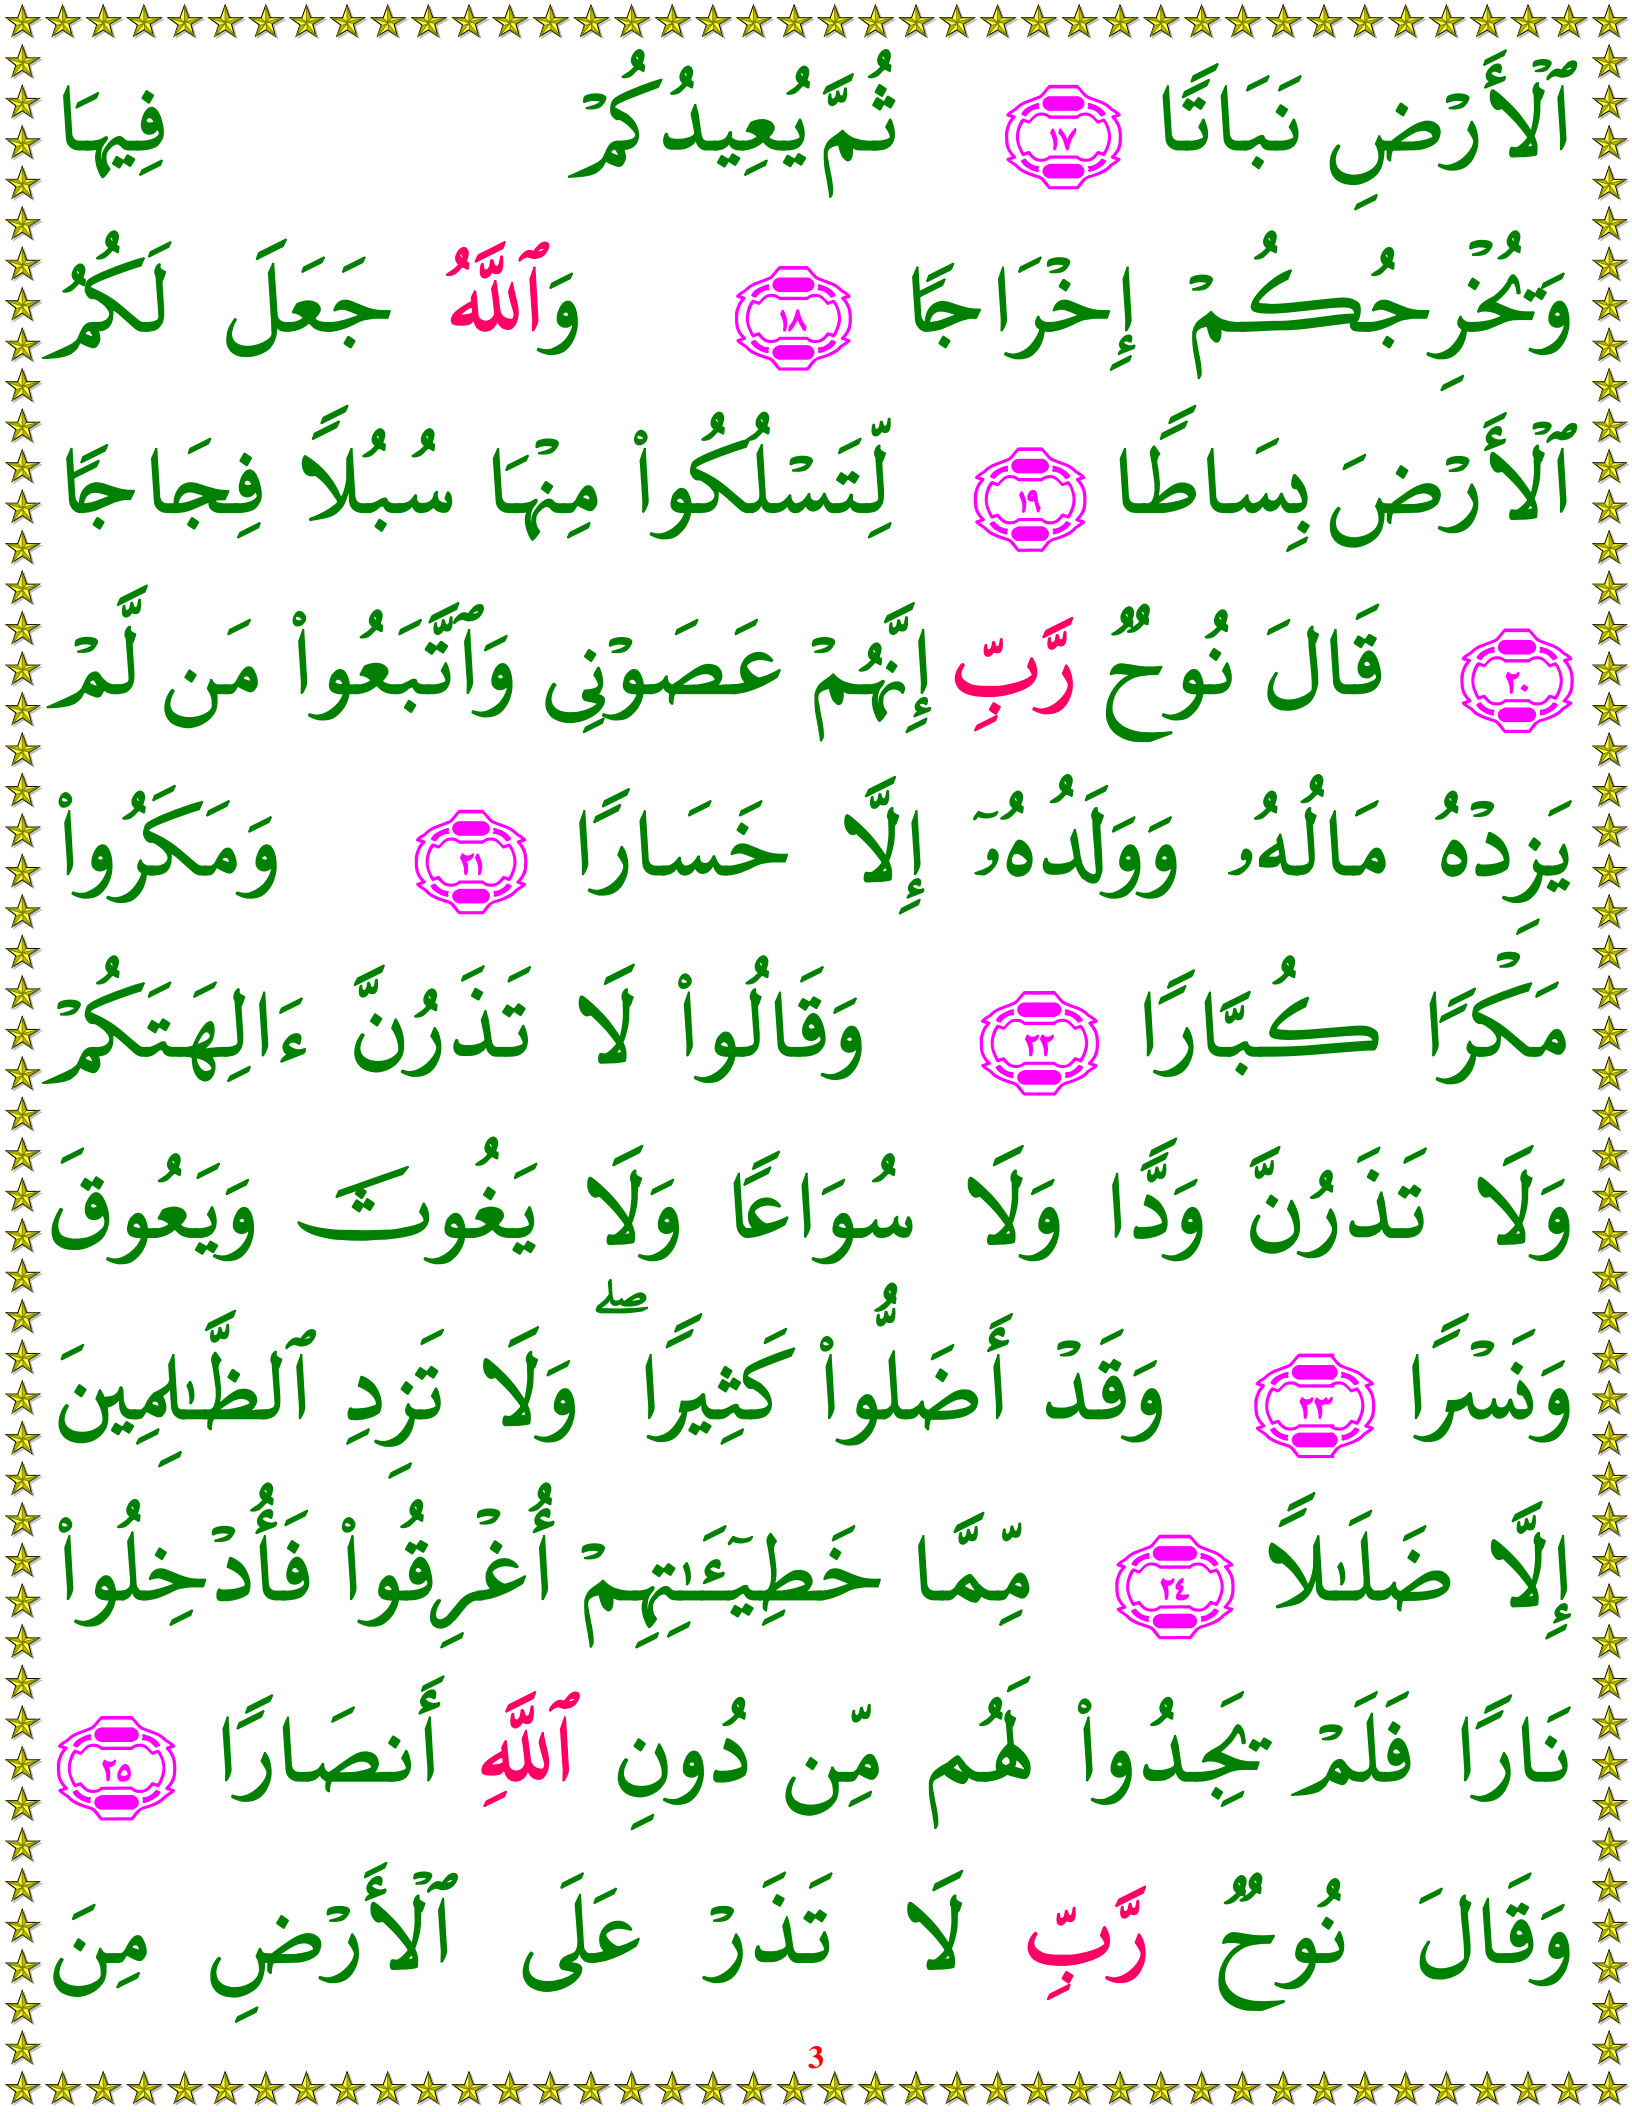 ٱلۡأَرۡضِ نَبَاتًا ١٧ ثُمَّ يُعِيدُكُمۡ فِيهَا
وَيُخۡرِجُكُمۡ إِخۡرَاجًا ١٨ وَٱللَّهُ جَعَلَ لَكُمُ
ٱلۡأَرۡضَ بِسَاطًا ١٩ لِّتَسۡلُكُواْ مِنۡهَا سُبُلًا فِجَاجًا
٢٠ قَالَ نُوحٌ رَّبِّ إِنَّهُمۡ عَصَوۡنِي وَٱتَّبَعُواْ مَن لَّمۡ
يَزِدۡهُ مَالُهُۥ وَوَلَدُهُۥٓ إِلَّا خَسَارًا ٢١ وَمَكَرُواْ
مَكۡرًا كُبَّارًا ٢٢ وَقَالُواْ لَا تَذَرُنَّ ءَالِهَتَكُمۡ
وَلَا تَذَرُنَّ وَدًّا وَلَا سُوَاعًا وَلَا يَغُوثَ وَيَعُوقَ
وَنَسۡرًا ٢٣ وَقَدۡ أَضَلُّواْ كَثِيرًاۖ وَلَا تَزِدِ ٱلظَّٰلِمِينَ
إِلَّا ضَلَٰلًا ٢٤ مِّمَّا خَطِيٓـَٰٔتِهِمۡ أُغۡرِقُواْ فَأُدۡخِلُواْ
نَارًا فَلَمۡ يَجِدُواْ لَهُم مِّن دُونِ ٱللَّهِ أَنصَارًا ٢٥
وَقَالَ نُوحٌ رَّبِّ لَا تَذَرۡ عَلَى ٱلۡأَرۡضِ مِنَ
3